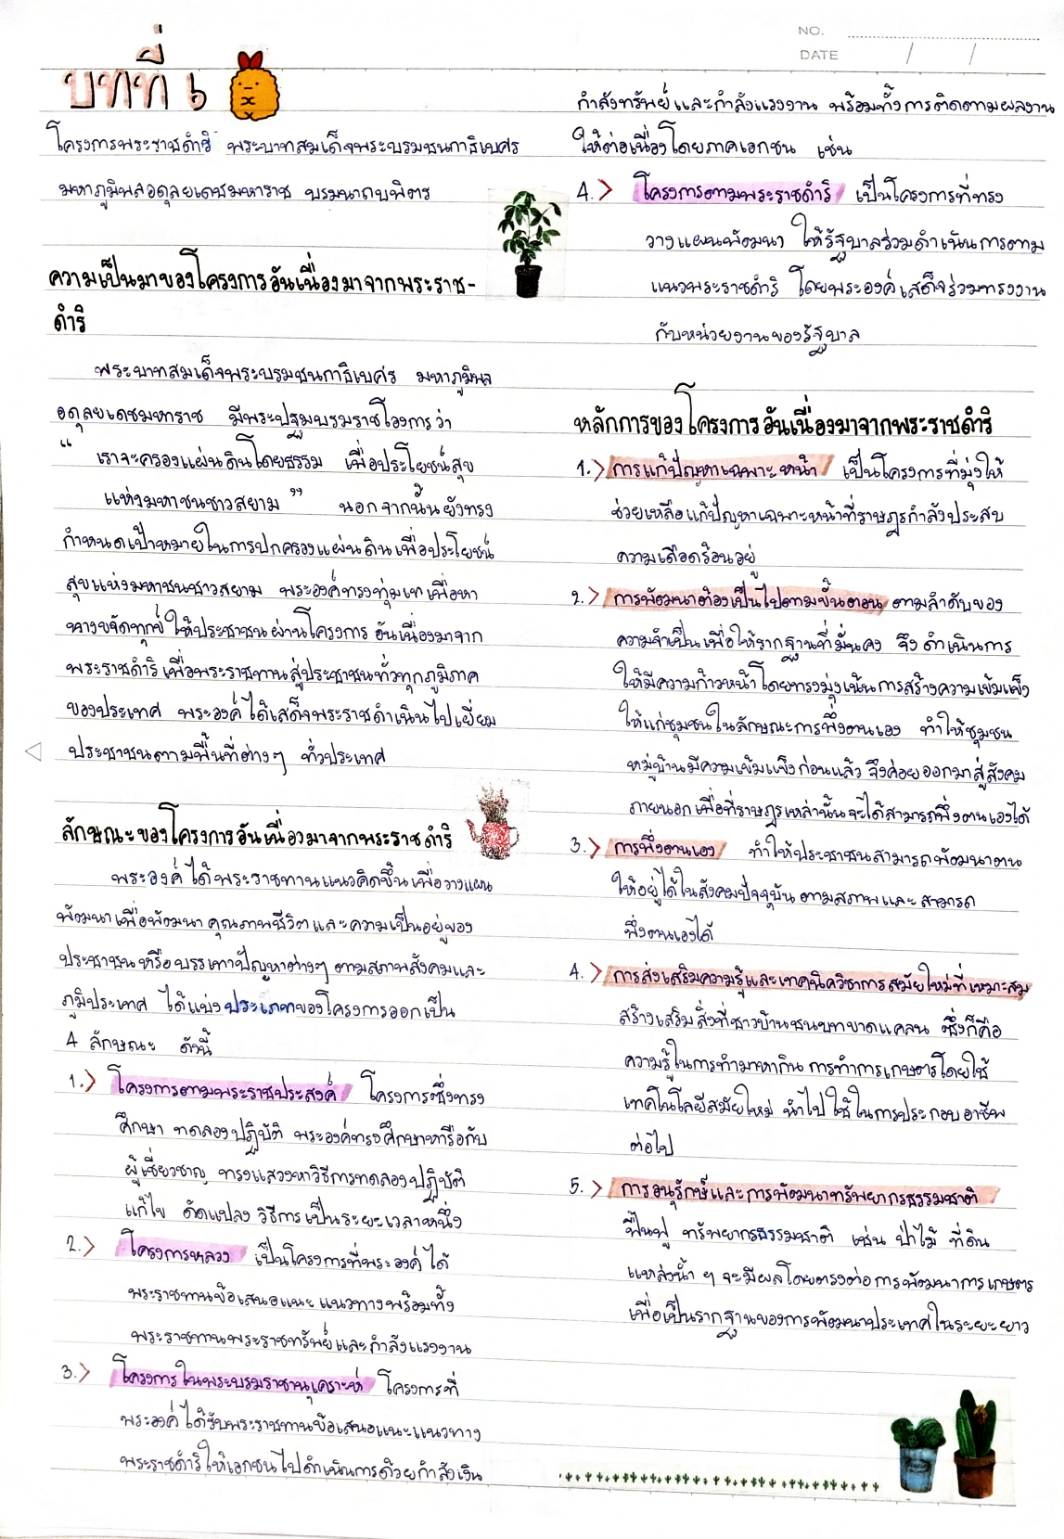 NO.
DATE / /
บทที่ ๖
โครงการพระราชดำริ พระบาทสมเด็จพระบรมชนกาธิเบศร
มหาภูมิพลอดุลยเดชมหาราช บรมนาถบพิตร
ความเป็นมาของโครงการอันเนื่องมาจากพระราช-
ดำริ
พระบาทสมเด็จพระบรมชนกาธิเบศร มหาภูมิพล
อดุลยเดชมหาราช มีพระปฐมบรมราชโองการว่า
“ เราจะครองแผ่นดินโดยธรรม เพื่อประโยชน์สุข
แห่งมหาชนชาวสยาม ” นอกจากนั้นยังทรง
กำหนดเป้าหมายในการปกครองแผ่นดินเพื่อประโยชน์
สุขแห่งมหาชนชาวสยาม พระองค์ทรงทุ่มเทเพื่อหา
ทางขจัดทุกข์ให้ประชาชนผ่านโครงการอันเนื่องมาจาก
พระราชดำริเพื่อพระราชทานสู่ประชาชนทั่วทุกภูมิภาค
ของประเทศ พระองค์ได้เสด็จพระราชดำเนินไปเยี่ยม
ประชาชนตามพื้นที่ต่างๆ ทั่วประเทศ
ลักษณะของโครงการอันเนื่องมาจากพระราชดำริ
พระองค์ได้พระราชทานแนวคิดขึ้นเพื่อวางแผน
พัฒนาเพื่อพัฒนาคุณภาพชีวิตและความเป็นอยู่ของ
ประชาชนหรือบรรเทาปัญหาต่างๆ ตามสภาพสังคมและ
ภูมิประเทศ ได้แบ่งประเภทของโครงการออกเป็น
4 ลักษณะ ดังนี้
1.> โครงการตามพระราชประสงค์ โครงการซึ่งทรง
ศึกษา ทดลองปฏิบัติ พระองค์ทรงศึกษาหารือกับ
ผู้เชี่ยวชาญ ทรงแสวงหาวิธีการทดลองปฏิบัติ
แก้ไข ดัดแปลง วิธีการเป็นระยะเวลาหนึ่ง
2.> โครงการหลวง เป็นโครงการที่พระองค์ได้
พระราชทานข้อเสนอแนะแนวทางพร้อมทั้ง
พระราชทานพระราชทรัพย์และกำลังแรงงาน
3.> โครงการในพระบรมราชานุเคราะห์ โครงการที่
พระองค์ได้รับพระราชทานข้อเสนอแนะแนวทาง
พระราชดำริให้เอกชนไปดำเนินการด้วยกำลังเงิน
กำลังทรัพย์และกำลังแรงงาน พร้อมทั้งการติดตามผลงาน
ให้ต่อเนื่องโดยภาคเอกชน เช่น
4.> โครงการตามพระราชดำริ เป็นโครงการที่ทรง
วางแผนพัฒนา ให้รัฐบาลร่วมดำเนินการตาม
แนวพระราชดำริ โดยพระองค์เสด็จร่วมทรงงาน
กับหน่วยงานของรัฐบาล
หลักการของโครงการอันเนื่องมาจากพระราชดำริ
1.> การแก้ปัญหาเฉพาะหน้า เป็นโครงการที่มุ่งให้
ช่วยเหลือแก้ปัญหาเฉพาะหน้าที่ราษฎรกำลังประสบ
ความเดือดร้อนอยู่
2.> การพัฒนาต้องเป็นไปตามขั้นตอน ตามลำดับของ
ความจำเป็นเพื่อให้รากฐานที่มั่นคง จึงดำเนินการ
ให้มีความก้าวหน้าโดยทรงมุ่งเน้นการสร้างความเข้มแข็ง
ให้แก่ชุมชนในลักษณะการพึ่งตนเอง ทำให้ชุมชน
หมู่บ้านมีความเข้มแข็งก่อนแล้ว จึงค่อยออกมาสู่สังคม
ภายนอกเพื่อที่ราษฎรเหล่านั้นจะได้สามารถพึ่งตนเองได้
3.> การพึ่งตนเอง ทำให้ประชาชนสามารถพัฒนาตน
ให้อยู่ได้ในสังคมปัจจุบันตามสภาพและสามารถ
พึ่งตนเองได้
4.> การส่งเสริมความรู้และเทคนิควิชาการสมัยใหม่ที่เหมาะสม
สร้างเสริมสิ่งที่ชาวบ้านชนบทขาดแคลน ซึ่งก็คือ
ความรู้ในการทำมาหากิน การทำการเกษตรโดยใช้
เทคโนโลยีสมัยใหม่ นำไปใช้ในการประกอบอาชีพ
ต่อไป
5.> การอนุรักษ์และการพัฒนาทรัพยากรธรรมชาติ
ฟื้นฟู ทรัพยากรธรรมชาติ เช่น ป่าไม้ ที่ดิน
แหล่งน้ำ ฯ จะมีผลโดยตรงต่อการพัฒนาการเกษตร
เพื่อเป็นรากฐานของการพัฒนาประเทศในระยะยาว